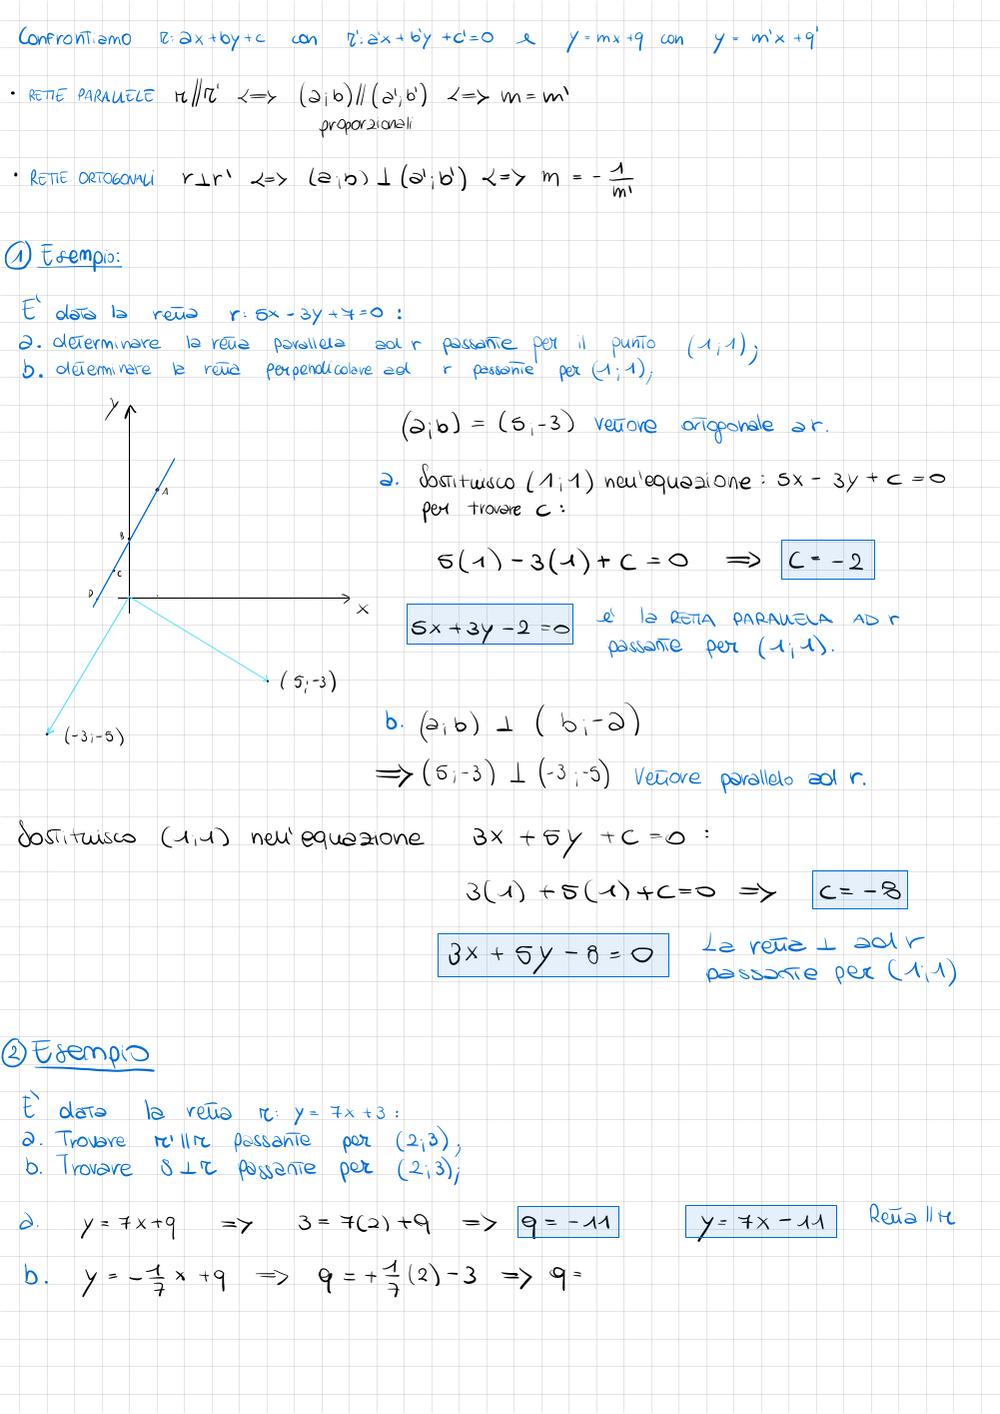 Confrontiamo r: ax+by+c con r': a'x+b'y+c'=0 e y=mx+q con y=m'x+q'
• RETTE PARALLELE r//r' <=> (a;b)//(a';b') <=> m=m'
proporzionali
• RETTE ORTOGONALI r⊥r' <=> (a;b)⊥(a';b') <=> m = -1/m'
① Esempio:
E' data la retta r: 5x-3y+7=0 :
a. determinare la retta parallela ad r passante per il punto (1;1);
b. determinare la retta perpendicolare ad r passante per (1;1);
y
A
B
C
D
x
(5;-3)
(-3;-5)
(a;b) = (5;-3) vettore ortogonale a r.
a. Sostituisco (1;1) nell'equazione: 5x-3y+c=0
per trovare c:
5(1)-3(1)+c=0 => c=-2
5x+3y-2=0 e' la RETTA PARALLELA AD r
passante per (1;1).
b. (a;b) ⊥ (b;-a)
=> (5;-3) ⊥ (-3;-5) Vettore parallelo ad r.
Sostituisco (1;1) nell'equazione 3x+5y+c=0 :
3(1)+5(1)+c=0 => c=-8
3x+5y-8=0 La retta ⊥ ad r
passante per (1;1)
② Esempio
E' data la retta r: y=7x+3 :
a. Trovare r'//r passante per (2;3);
b. Trovare s⊥r passante per (2;3);
a. y=7x+q => 3=7(2)+q => q=-11 y=7x-11 Retta //r
b. y=-1/7 x+q => q=+1/7(2)-3 => q=